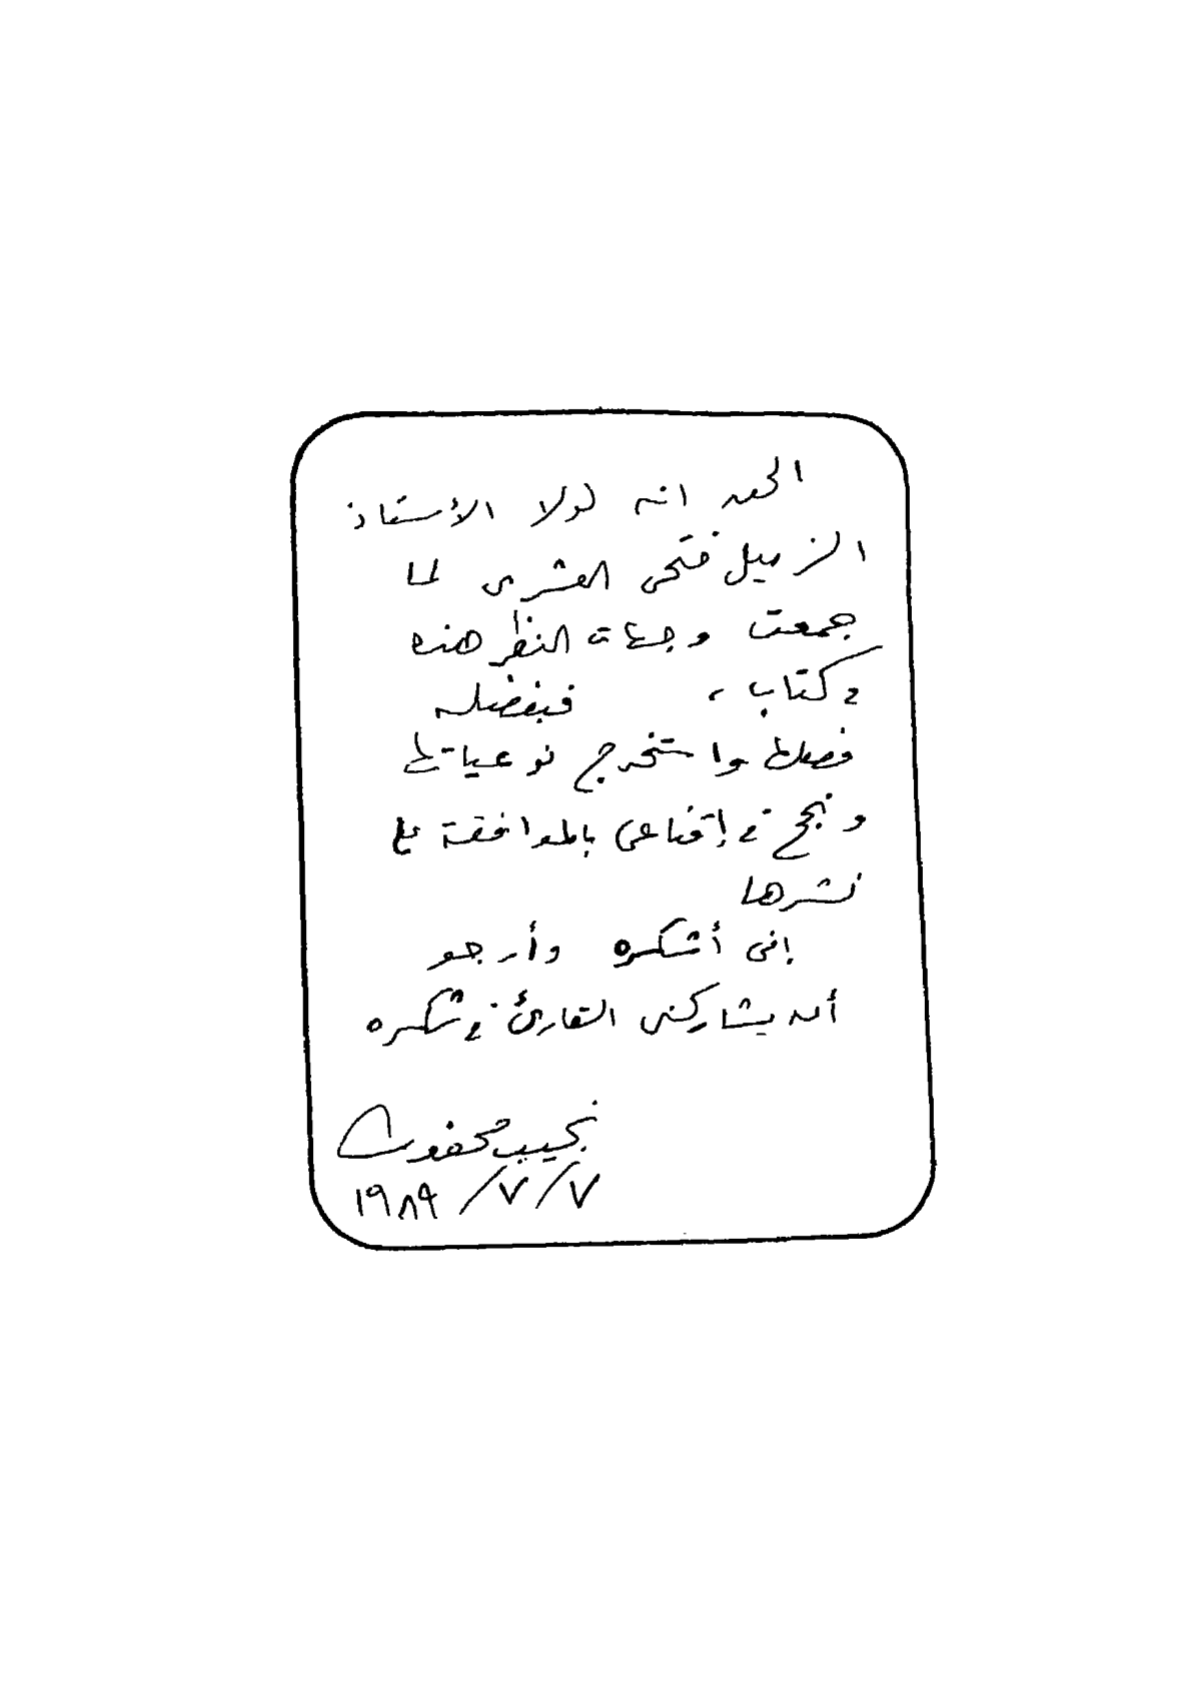 الحق انه لولا الأستاذ
الزميل فتحى العشرى لما
جمعت وجهات النظر هذه
فى كتاب ، فبفضله
فصلها واستخرج نوعياتها
ونجح فى إقناعى بالموافقة على
نشرها
إنى أشكره وأرجو
أن يشاركنى القارئ فى شكره
نجيب محفوظ
٧/٧/١٩٨٩